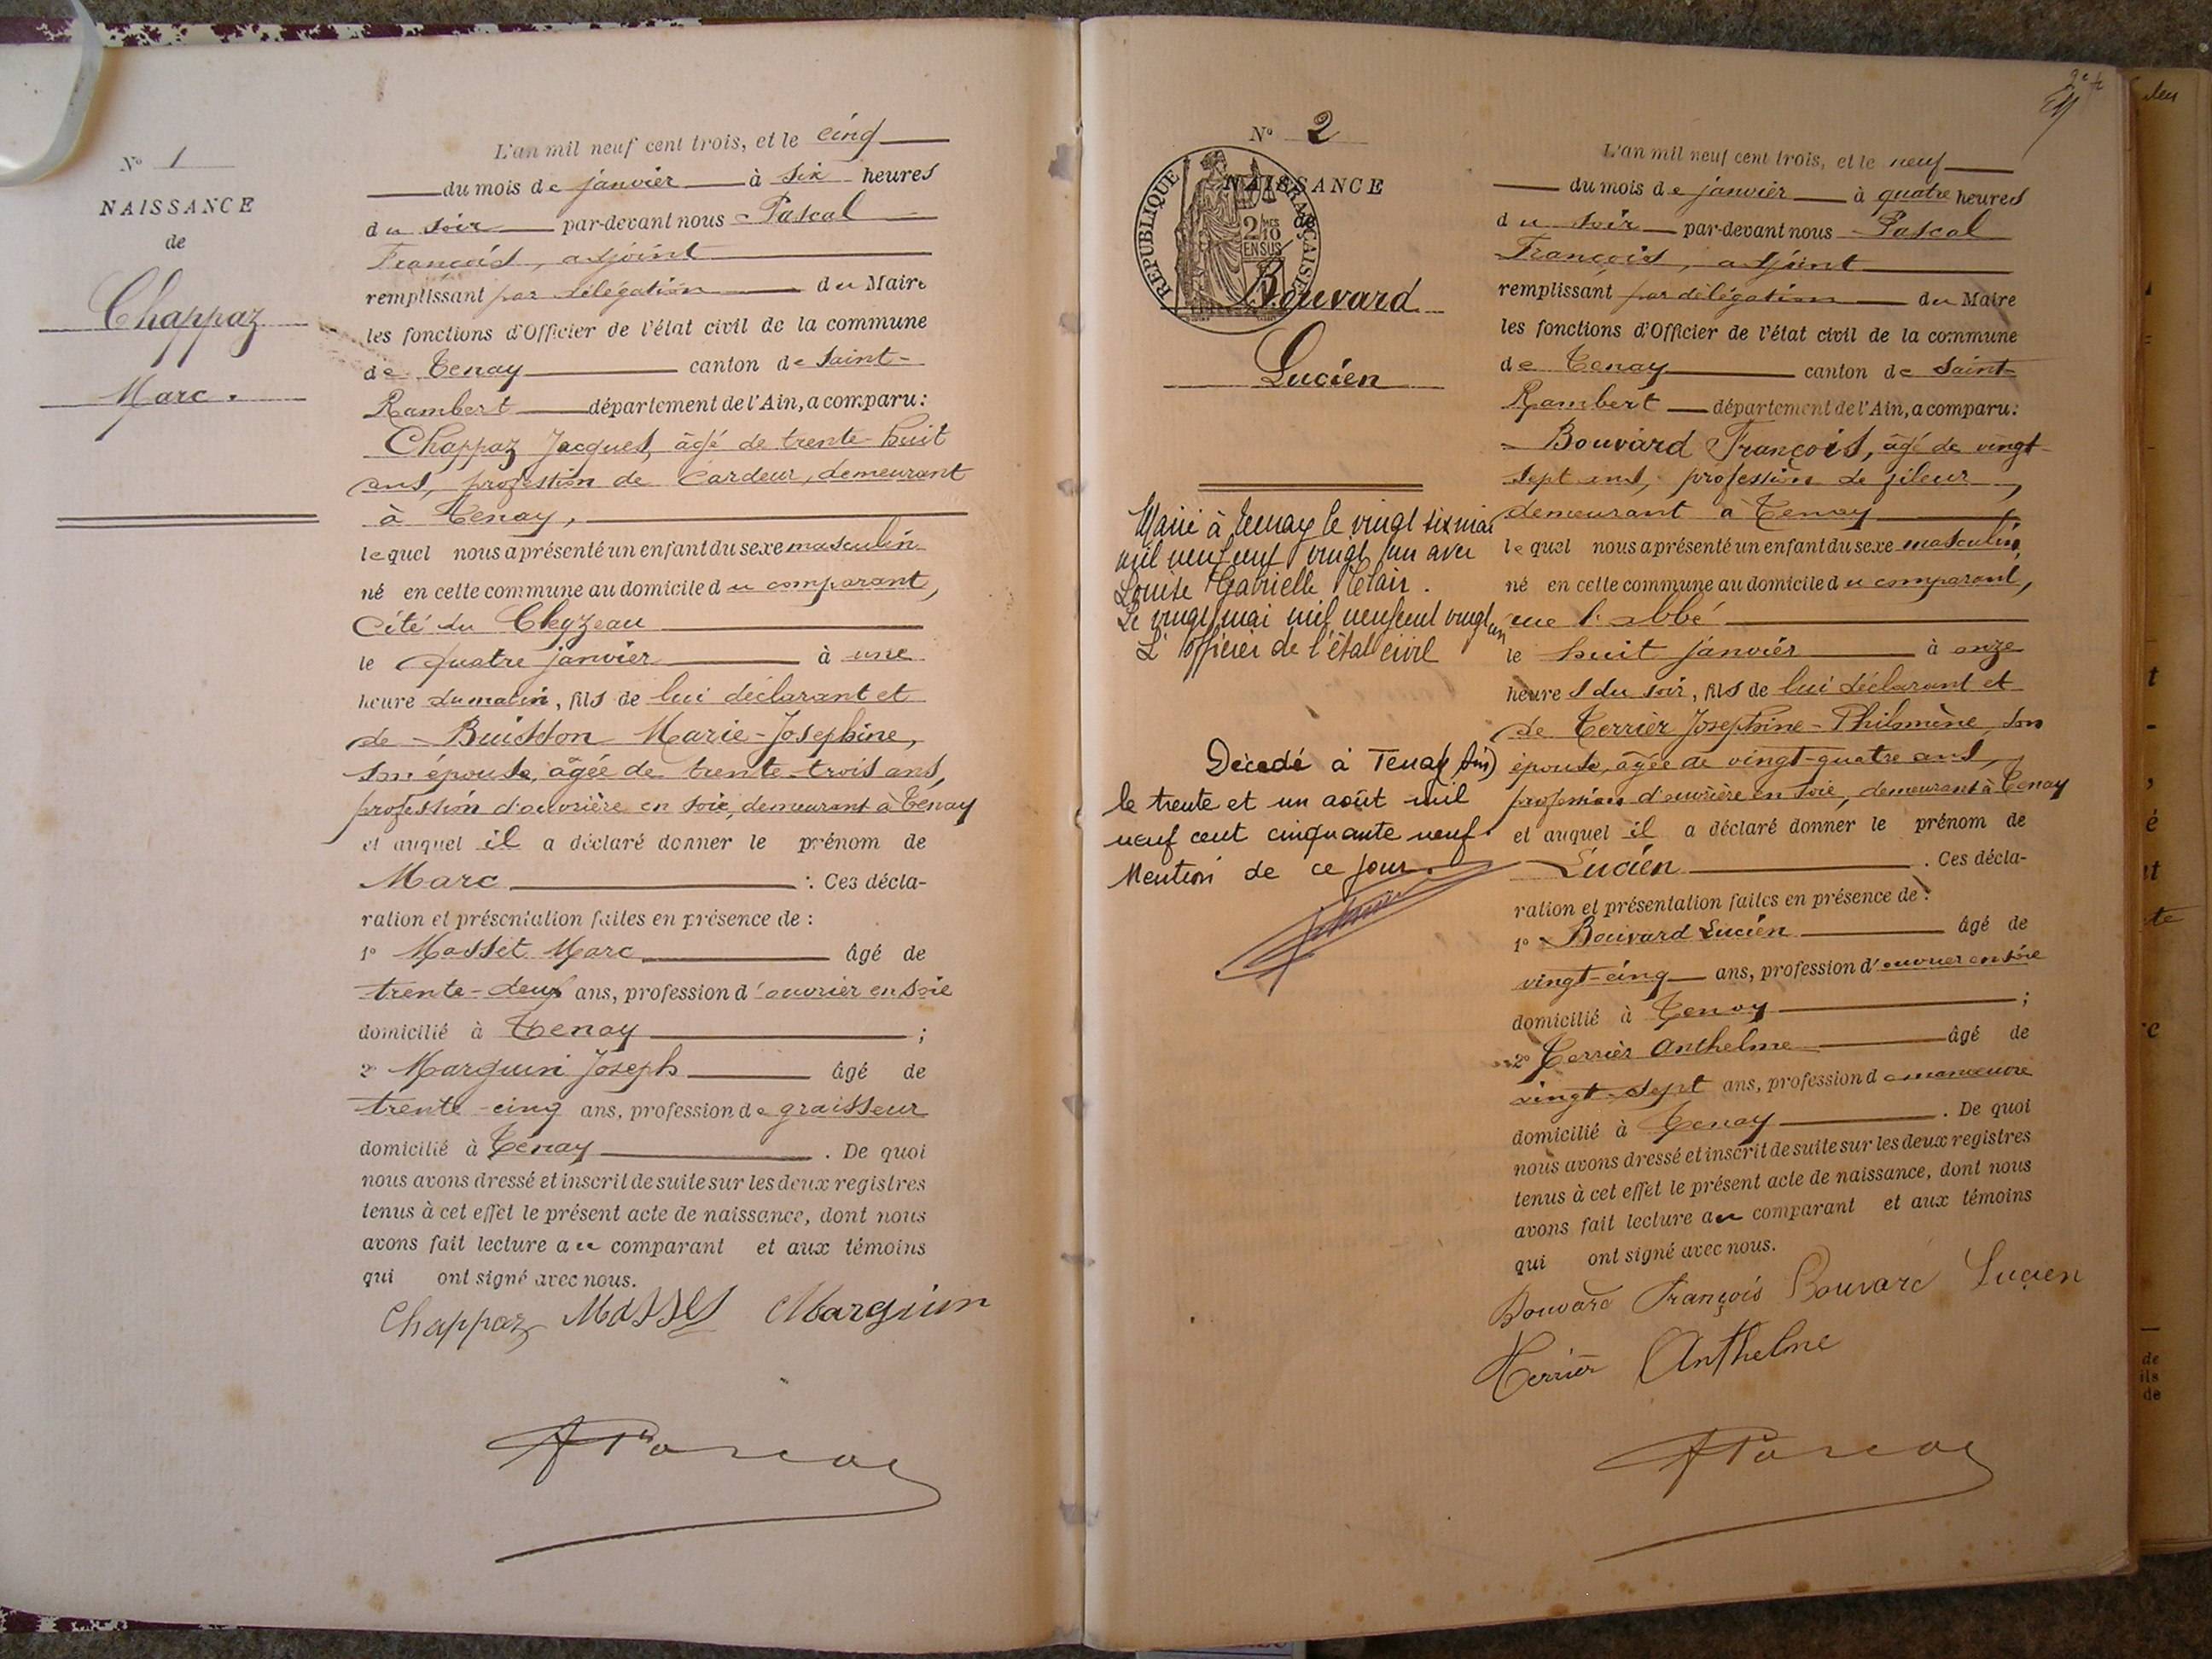 N° 1
NAISSANCE
de
Chappaz
Marc.
L'an mil neuf cent trois, et le cinq
du mois de janvier à six heures
du soir par-devant nous Pascal
François, adjoint
remplissant par délégation du Maire
les fonctions d'Officier de l'état civil de la commune
de Tenay canton de Saint-
Rambert département de l'Ain, a comparu:
Chappaz Jacques, âgé de trente-huit
ans, profession de Cardeur, demeurant
à Tenay,
lequel nous a présenté un enfant du sexe masculin
né en cette commune au domicile du comparant,
Cité du Cleyzeau
le quatre janvier à une
heure du matin, fils de lui déclarant et
de Buisson Marie-Josephine,
son épouse, âgée de trente-trois ans,
profession d'ouvrière en soie, demeurant à Tenay
et auquel il a déclaré donner le prénom de
Marc . Ces décla-
ration et présentation faites en présence de :
1° Masset Marc âgé de
trente-deux ans, profession d'ouvrier en soie
domicilié à Tenay ;
2° Marguin Joseph âgé de
trente-cinq ans, profession de graisseur
domicilié à Tenay . De quoi
nous avons dressé et inscrit de suite sur les deux registres
tenus à cet effet le présent acte de naissance, dont nous
avons fait lecture au comparant et aux témoins
qui ont signé avec nous.
Chappaz Masset Marguin
F Pascal
2e f
N° 2
NAISSANCE
de
RÉPUBLIQUE FRANÇAISE
2/10 EN SUS
Bouvard
Lucien
Marié à Tenay le vingt six mai
mil neuf cent vingt un avec
Louise Gabrielle Clair.
Le vingt mai mil neuf cent vingt un
L'officier de l'état civil
Décédé à Tenay (Ain)
le trente et un août mil
neuf cent cinquante neuf.
Mention de ce jour.
L'an mil neuf cent trois, et le neuf
du mois de janvier à quatre heures
du soir par-devant nous Pascal
François, adjoint
remplissant par délégation du Maire
les fonctions d'Officier de l'état civil de la commune
de Tenay canton de Saint-
Rambert département de l'Ain, a comparu:
Bouvard François, âgé de vingt-
sept ans, profession de fileur,
demeurant à Tenay
lequel nous a présenté un enfant du sexe masculin,
né en cette commune au domicile du comparant,
rue l'abbé
le huit janvier à onze
heures du soir, fils de lui déclarant et
de Terrier Josephine-Philomène, son
épouse, âgée de vingt-quatre ans,
profession d'ouvrière en soie, demeurant à Tenay
et auquel il a déclaré donner le prénom de
Lucien . Ces décla-
ration et présentation faites en présence de :
1° Bouvard Lucien âgé de
vingt-cinq ans, profession d'ouvrier en soie
domicilié à Tenay ;
2° Terrier Anthelme âgé de
vingt-sept ans, profession de manœuvre
domicilié à Tenay . De quoi
nous avons dressé et inscrit de suite sur les deux registres
tenus à cet effet le présent acte de naissance, dont nous
avons fait lecture au comparant et aux témoins
qui ont signé avec nous.
Bouvard François Bouvard Lucien
Terrier Anthelme
F Pascal